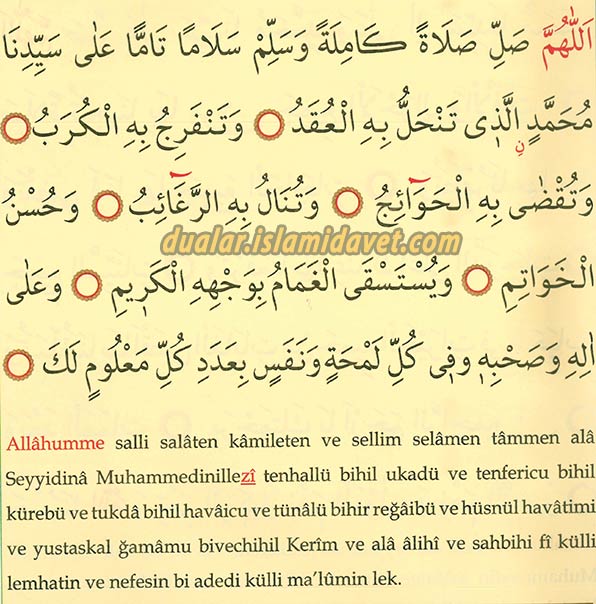 اَللّٰهُمَّ صَلِّ صَلَاةً كَامِلَةً وَسَلِّمْ سَلَامًا تَامًّا عَلٰى سَيِّدِنَا
مُحَمَّدٍ نِ الَّذ۪ي تَنْحَلُّ بِهِ الْعُقَدُ ۝ وَتَنْفَرِجُ بِهِ الْكُرَبُ ۝
وَتُقْضٰى بِهِ الْحَوَٓائِجُ ۝ وَتُنَالُ بِهِ الرَّغَٓائِبُ ۝ وَحُسْنُ
dualar.islamidavet.com
الْخَوَاتِمِ ۝ وَيُسْتَسْقَى الْغَمَامُ بِوَجْهِهِ الْكَر۪يمِ ۝ وَعَلٰى
اٰلِهِ وَصَحْبِه۪ وَف۪ي كُلِّ لَمْحَةٍ وَنَفَسٍ بِعَدَدِ كُلِّ مَعْلُومٍ لَكَ ۝
Allâhumme salli salâten kâmileten ve sellim selâmen tâmmen alâ
Seyyidinâ Muhammedinillezî tenhallü bihil ukadü ve tenfericu bihil
kürebü ve tukdâ bihil havâicu ve tünâlü bihir reğâibü ve hüsnül havâtimi
ve yustaskal ğamâmu bivechihil Kerîm ve alâ âlihî ve sahbihi fî külli
lemhatin ve nefesin bi adedi külli ma'lûmin lek.